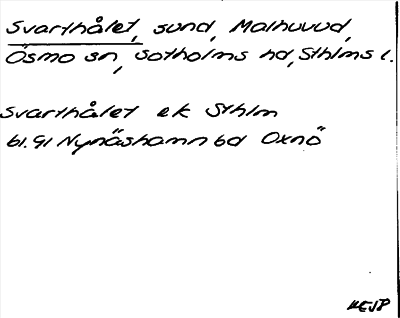 Svarthålet, sund, Malhuvud,
Ösmo sn, Sotholms hd, Sthlms l.
Svarthålet ek Sthlm
bl. 91 Nynäshamn bd Oxnö